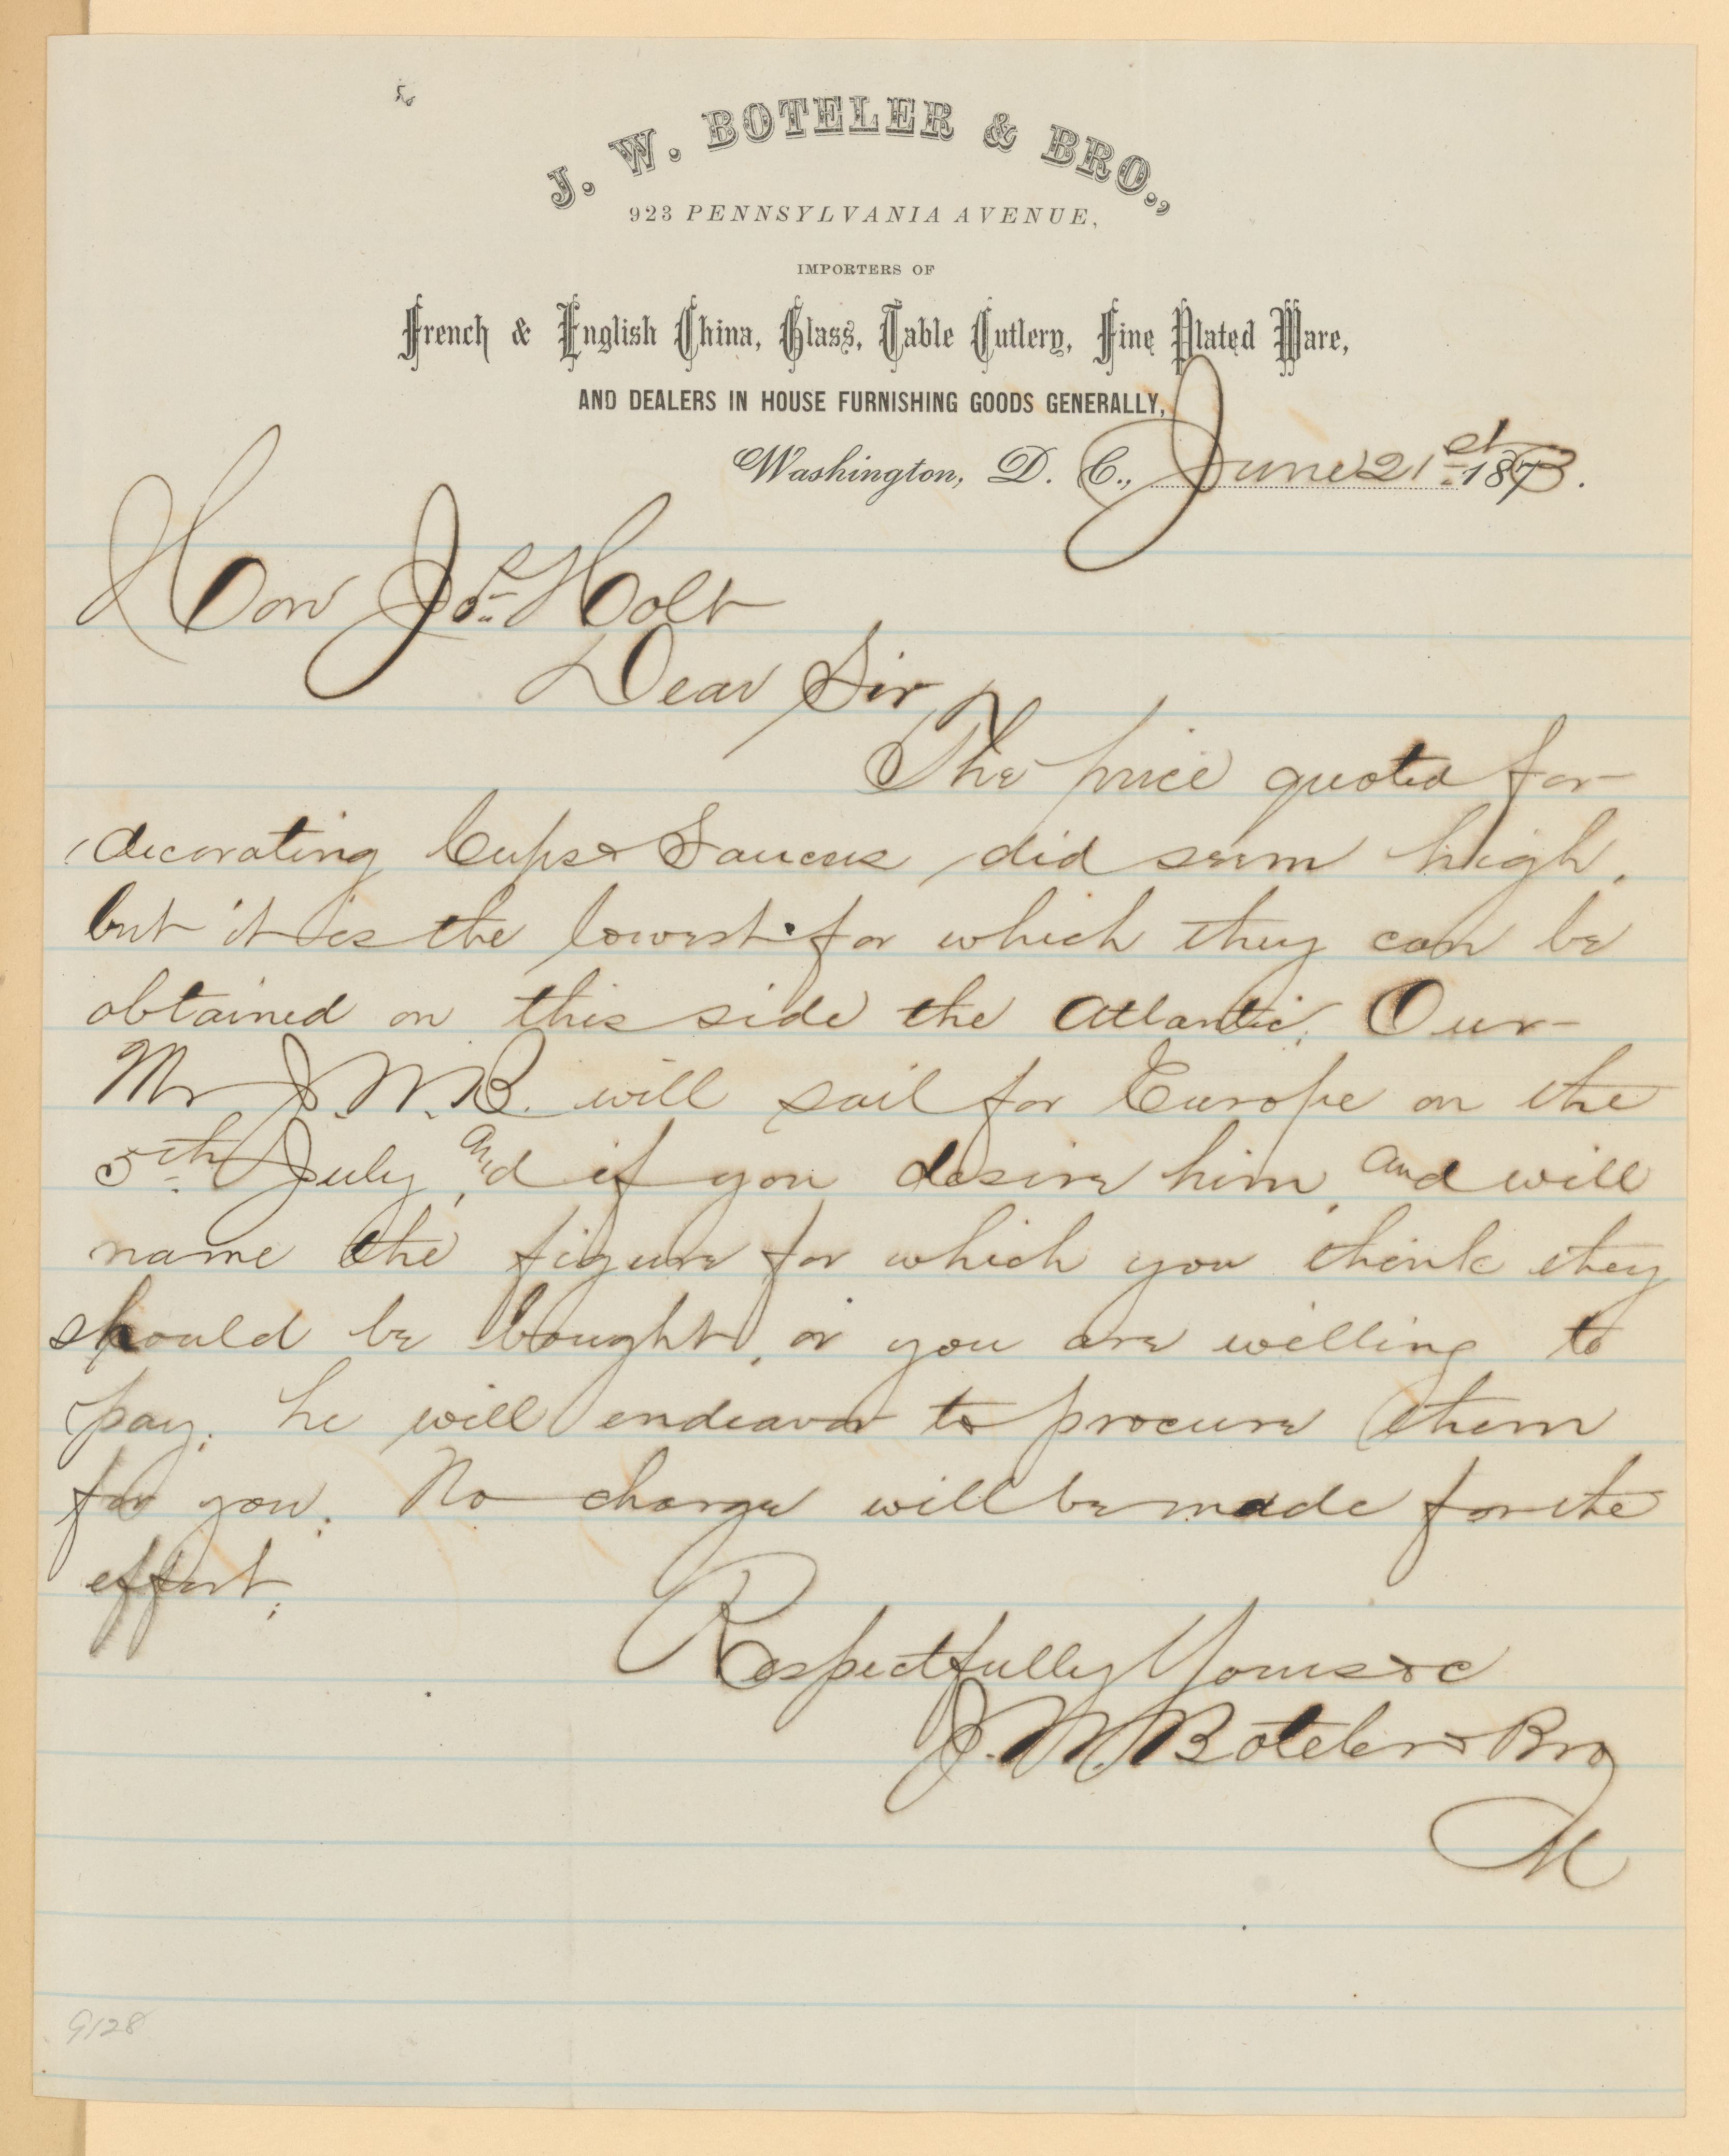 J. W. BOTELER & BRO.,
923 PENNSYLVANIA AVENUE,
IMPORTERS OF
French & English China, Glass, Table Cutlery, Fine Plated Ware,
AND DEALERS IN HOUSE FURNISHING GOODS GENERALLY,
Washington, D. C., June 21st 1873.
Hon Jos Holt
Dear Sir,
The price quoted for
decorating Cups & Saucers did seem high,
but it is the lowest for which they can be
obtained on this side the Atlantic. Our
Mr J. W. B. will sail for Europe on the
5th July, and if you desire him, and will
name the figure for which you think they
should be bought, or you are willing to
pay, he will endeavor to procure them
for you. No charge will be made for the
effort.
Respectfully Yours &c
J. W. Boteler & Bro
M
9128